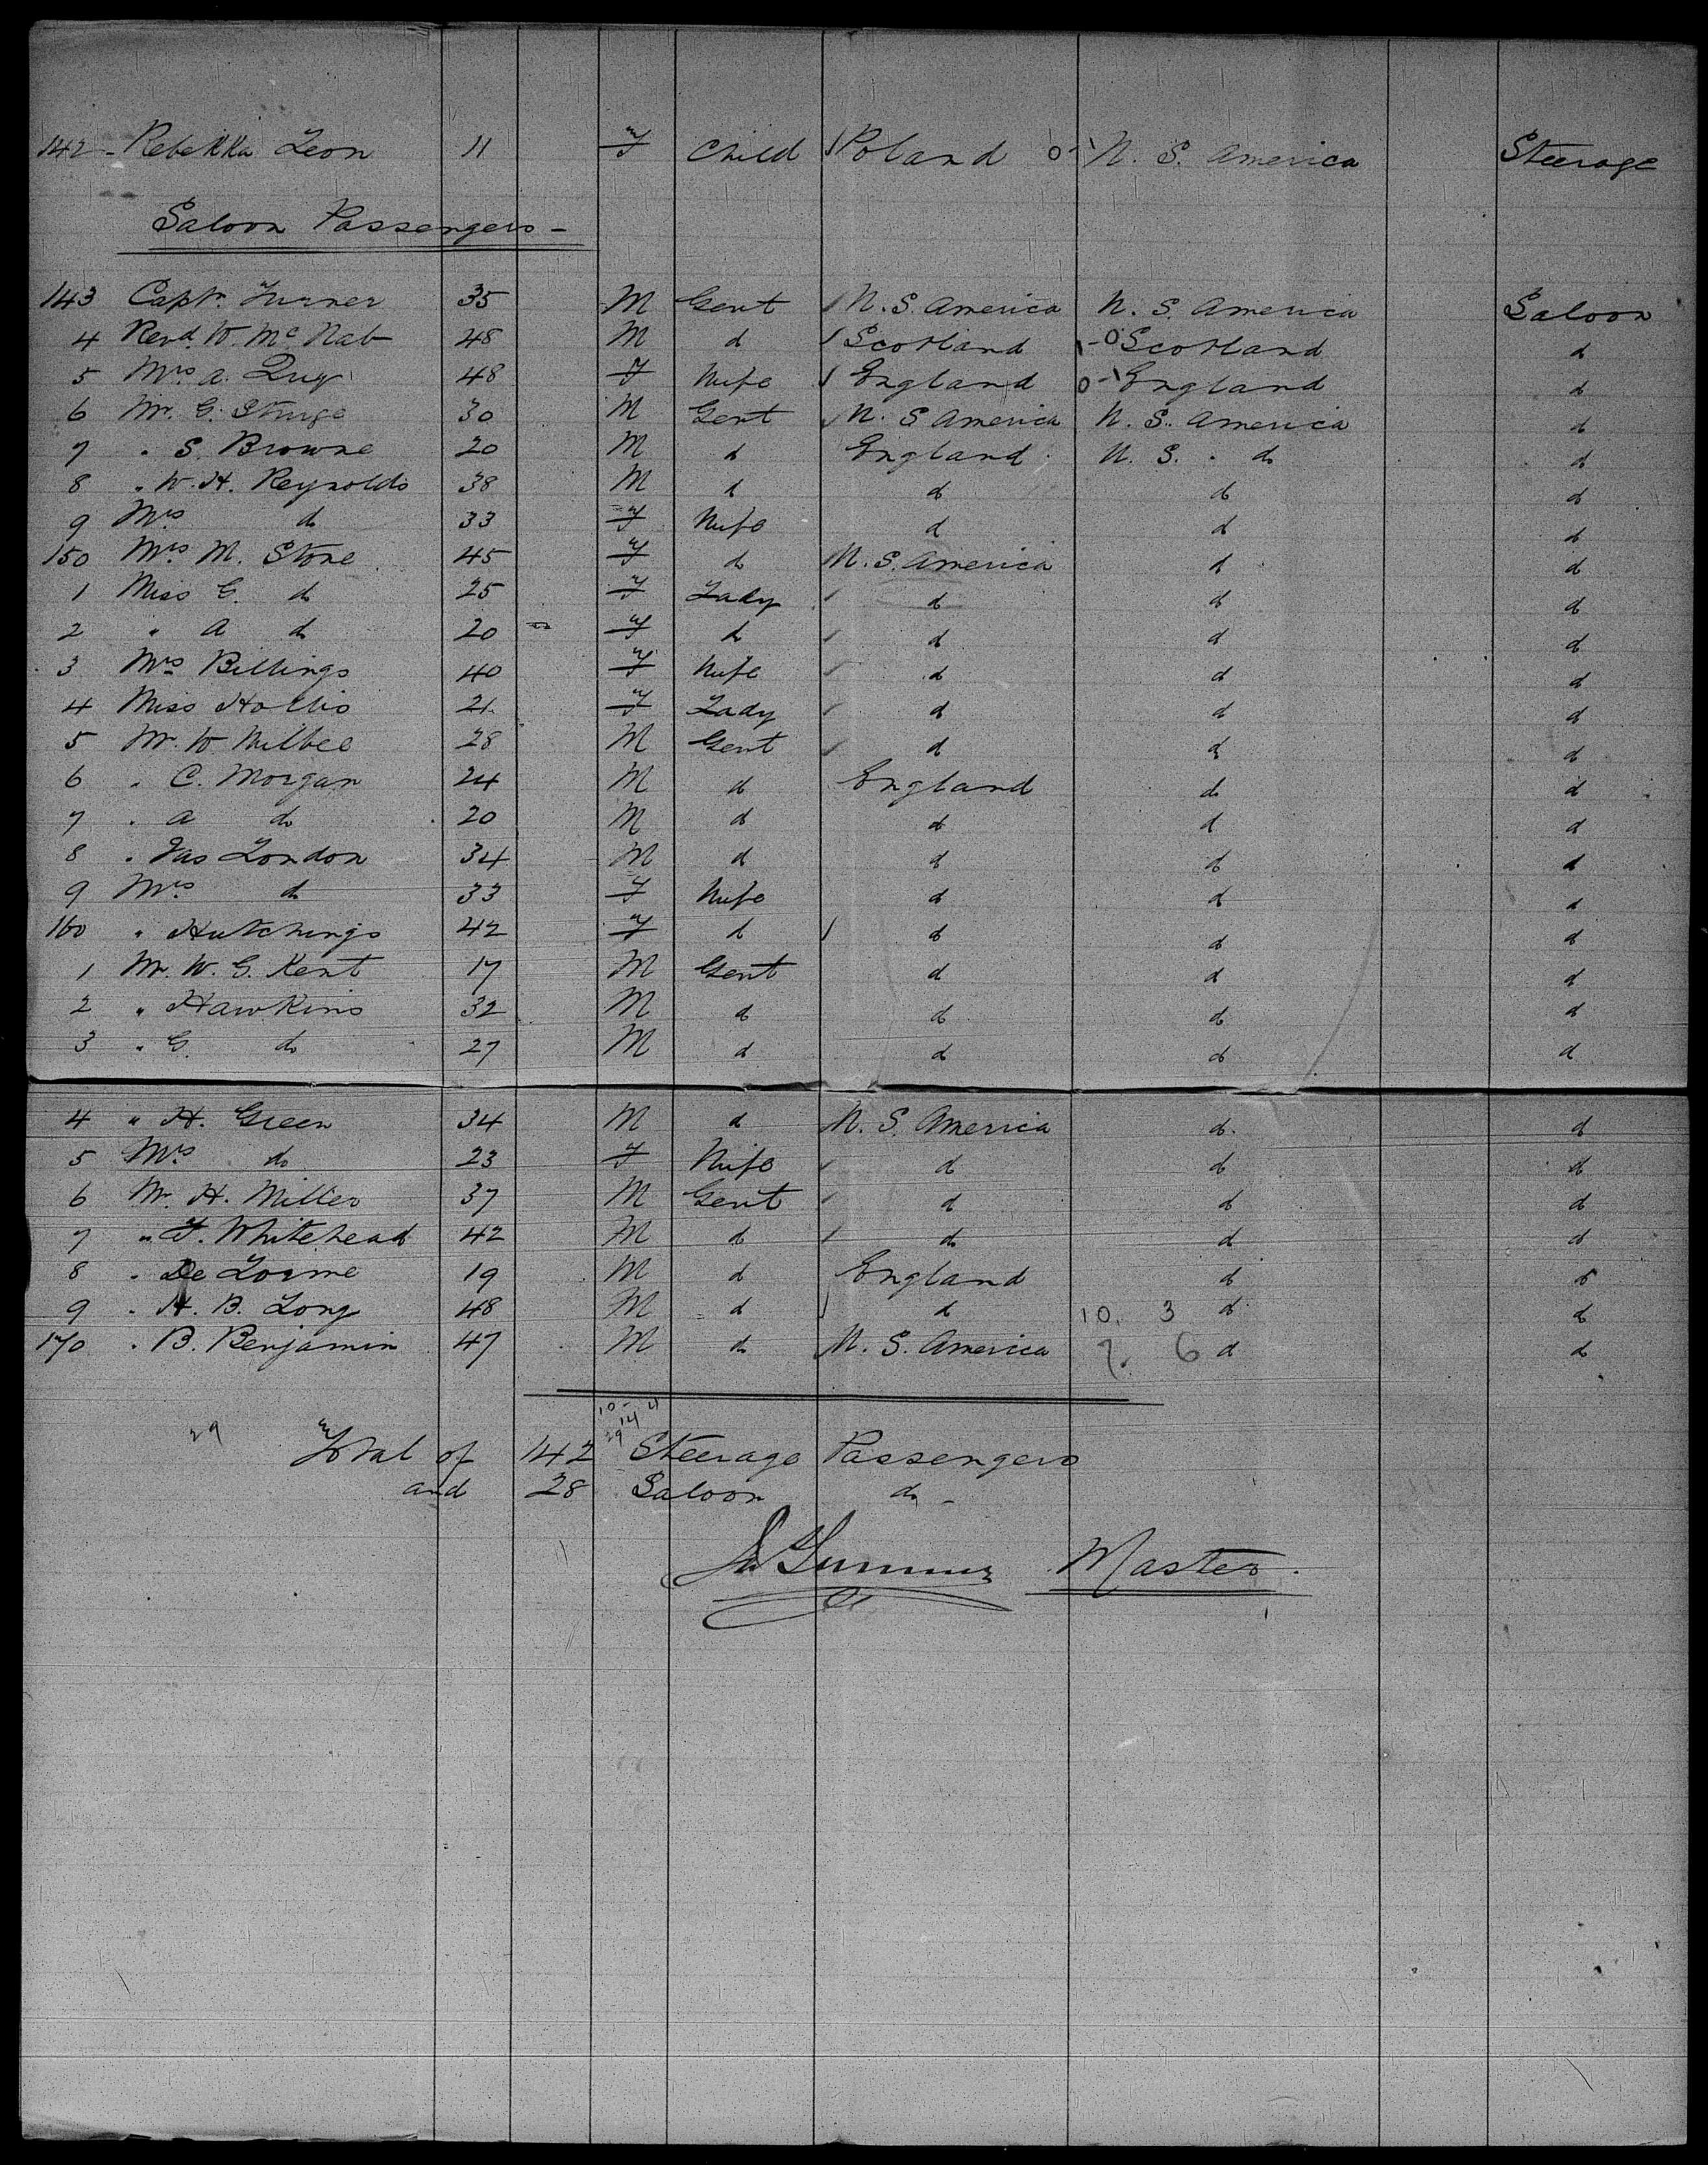 142 - Rebekka Leon 11 F Child Poland 0- N. S. America Steerage
Saloon Passengers -
143 Capt. Turner 35 M Gent N. S. America N. S. America Saloon
4 Revd. W. Mc Nab 48 M d Scotland -0 Scotland d
5 Mrs A. Quy 48 F Wife England 0- England d
6 Mr. G. Sturge 30 M Gent N. S America N. S. America d
7 " S. Browne 20 M d England N. S. do d
8 " W. H. Reynolds 38 M d d d d
9 Mrs do 33 F Wife d d d
150 Mrs M. Stone 45 F do N. S. America d d
1 Miss G. do 25 F Lady d d d
2 " A do 20 F d d d d
3 Mrs Billings 40 F Wife d d d
4 Miss Hollis 21 F Lady d d d
5 Mr. W Wilbee 28 M Gent d d d
6 " C. Morgan 24 M d England d d
7 " A do 20 M d d d d
8 " Jas London 34 M d d d d
9 Mrs do 33 F Wife d d d
160 " Hutchings 42 F d d d d
1 Mr. W. G. Kent 17 M Gent d d d
2 " Hawkins 32 M d d d d
3 " G. do 27 M d d d d
4 " H. Green 34 M d N. S. America d d
5 Mrs do 23 F Wife d d d
6 Mr. H. Miller 37 M Gent d d d
7 " T. Whitehead 42 M d d d d
8 " De Lorme 19 M d England d d
9 " H. B. Long 48 M d d 10. 3 d d
170 " B. Benjamin 47 M do N. S. America 7. 6 d d
29 10- 14 4 29
Total of 142 Steerage Passengers
and 28 Saloon do -
Master.